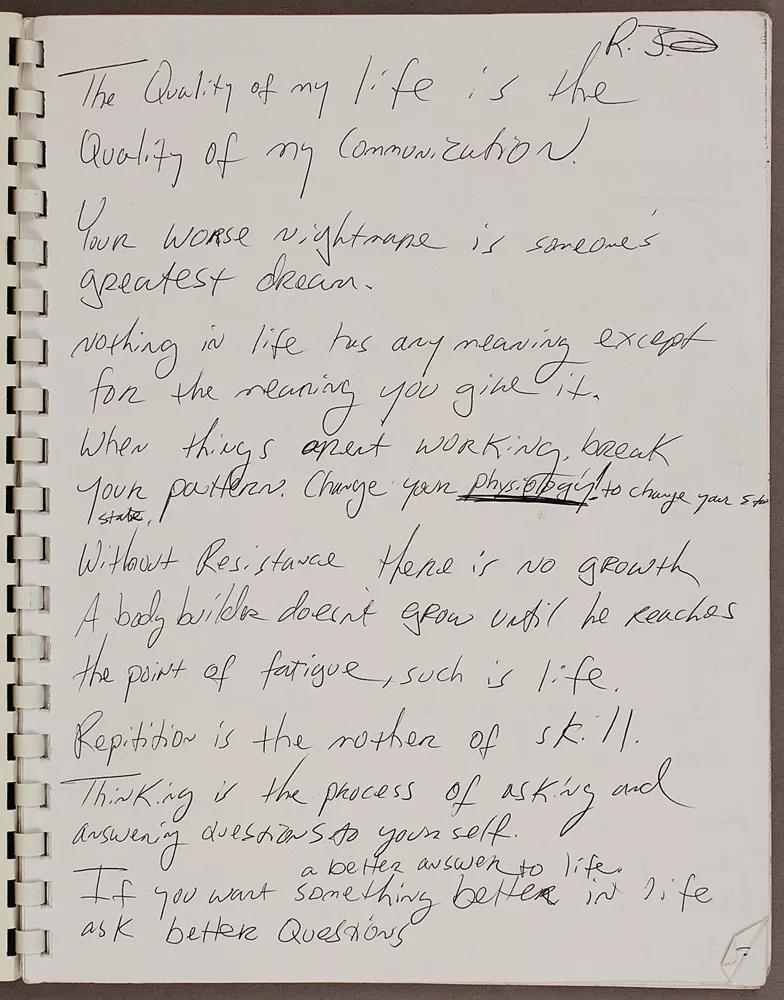 R. J.
The Quality of my life is the
Quality of my Communication.
Your worse nightmare is someone's
greatest dream.
Nothing in life has any meaning except
for the meaning you give it.
When things arent working, break
your pattern. Change your physiology! to change your
state.
Without Resistance there is no growth
A body builder doesn't grow until he reaches
the point of fatigue, such is life.
Repitition is the mother of skill.
Thinking is the process of asking and
answering questions to yourself.
a better answer to life.
If you want something better in life
ask better Questions